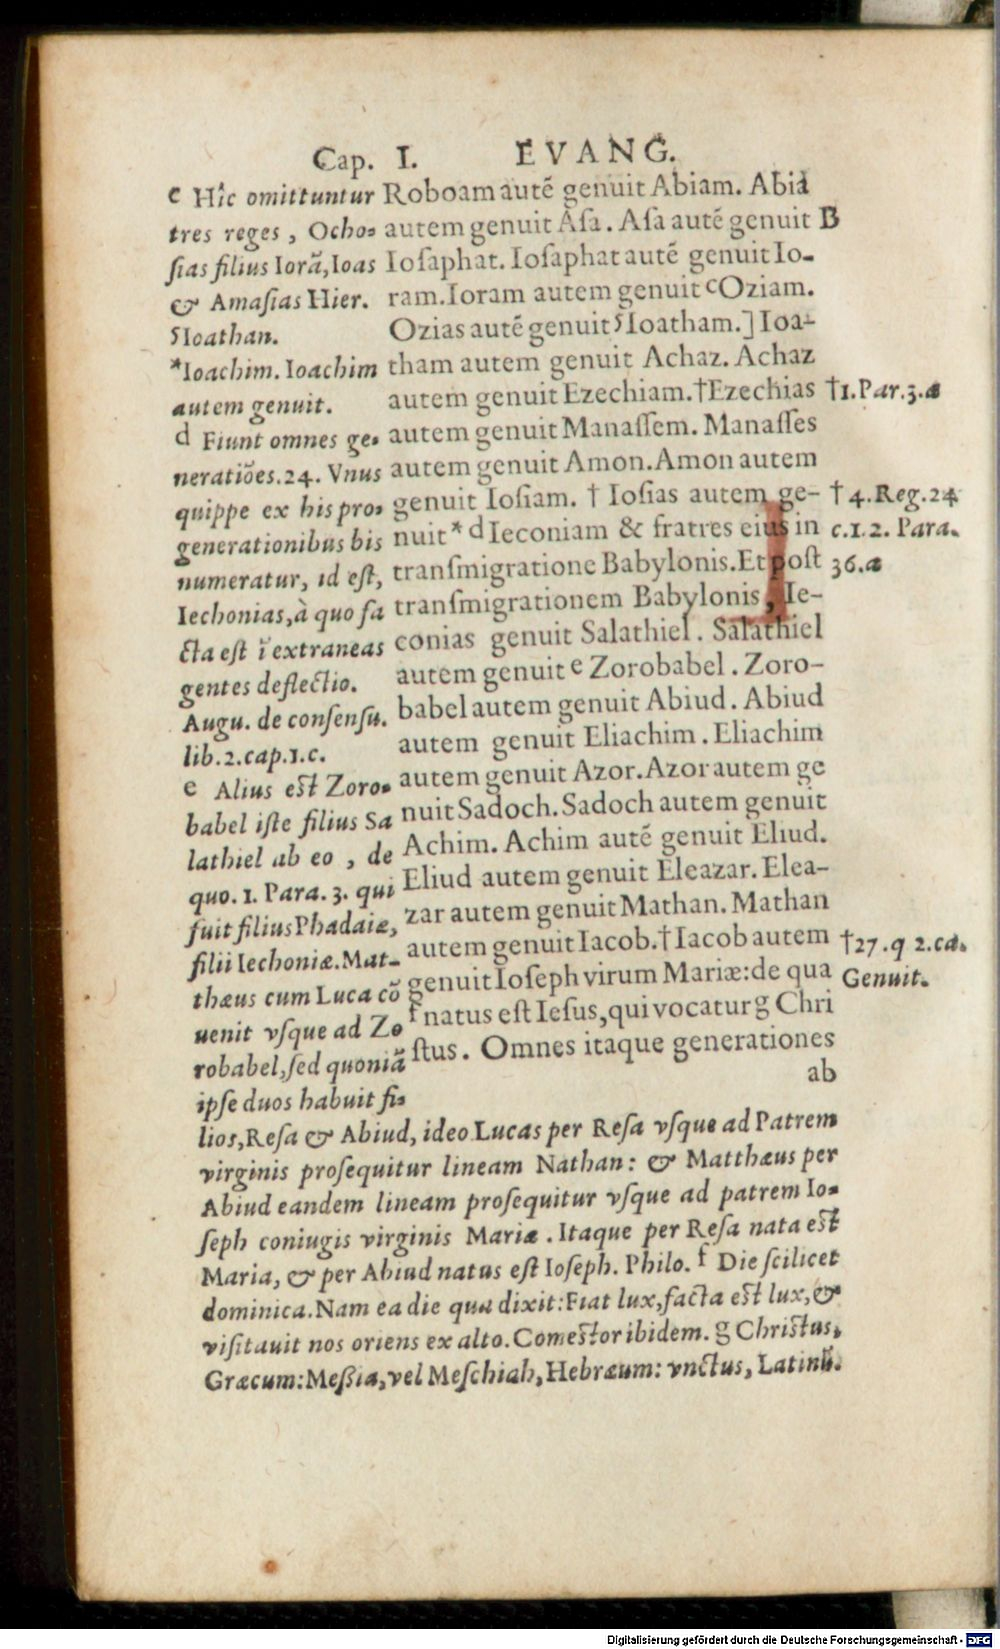 Cap. I. EVANG.
Roboam autē genuit Abiam. Abia
autem genuit Aſa. Aſa autē genuit
Ioſaphat. Ioſaphat autē genuit Io-
ram. Ioram autem genuit cOziam.
Ozias autē genuit ꝯIoatham.] Ioa-
tham autem genuit Achaz. Achaz
autem genuit Ezechiam. †Ezechias
autem genuit Manaſſem. Manaſſes
autem genuit Amon. Amon autem
genuit Ioſiam. † Ioſias autem ge-
nuit * d Ieconiam & fratres eius in
tranſmigratione Babylonis. Et poſt
tranſmigrationem Babylonis, Ie-
conias genuit Salathiel. Salathiel
autem genuit e Zorobabel. Zoro-
babel autem genuit Abiud. Abiud
autem genuit Eliachim. Eliachim
autem genuit Azor. Azor autem ge
nuit Sadoch. Sadoch autem genuit
Achim. Achim autē genuit Eliud.
Eliud autem genuit Eleazar. Elea-
zar autem genuit Mathan. Mathan
autem genuit Iacob. † Iacob autem
genuit Ioſeph virum Mariæ: de qua
f natus eſt Ieſus, qui vocatur g Chri
ſtus. Omnes itaque generationes
ab
c Hîc omittuntur
tres reges, Ocho-
ſias filius Iorā, Ioas
& Amaſias Hier.
ꝯIoathan.
*Ioachim. Ioachim
autem genuit.
d Fiunt omnes ge-
neratiōes. 24. Vnus
quippe ex his pro-
generationibus bis
numeratur, id eſt,
Iechonias, à quo fa
cta eſt ī extraneas
gentes deflectio.
Augu. de conſenſu.
lib. 2. cap. 1. c.
e Alius eſt Zoro-
babel iſte filius Sa
lathiel ab eo, de
quo. 1. Para. 3. qui
fuit filius Phadaiæ,
filii Iechoniæ. Mat-
thæus cum Luca cō
uenit vſque ad Zo
robabel, ſed quoniā
ipſe duos habuit fi-
lios, Reſa & Abiud, ideo Lucas per Reſa vſque ad Patrem
virginis proſequitur lineam Nathan: & Matthæus per
Abiud eandem lineam proſequitur vſque ad patrem Io-
ſeph coniugis virginis Mariæ. Itaque per Reſa nata eſt
Maria, & per Abiud natus eſt Ioſeph. Philo. f Die ſcilicet
dominica. Nam ea die qua dixit: Fiat lux, facta eſt lux, &
viſitauit nos oriens ex alto. Comeſtor ibidem. g Chriſtus,
Græcum: Meßia, vel Meſchiah, Hebræum: vnctus, Latinū.
B
†1. Par. 3. a
†4. Reg. 24
c. 1. 2. Para.
36. a
†27. q 2. ca.
Genuit.
Digitalisierung gefördert durch die Deutsche Forschungsgemeinschaft - DFG